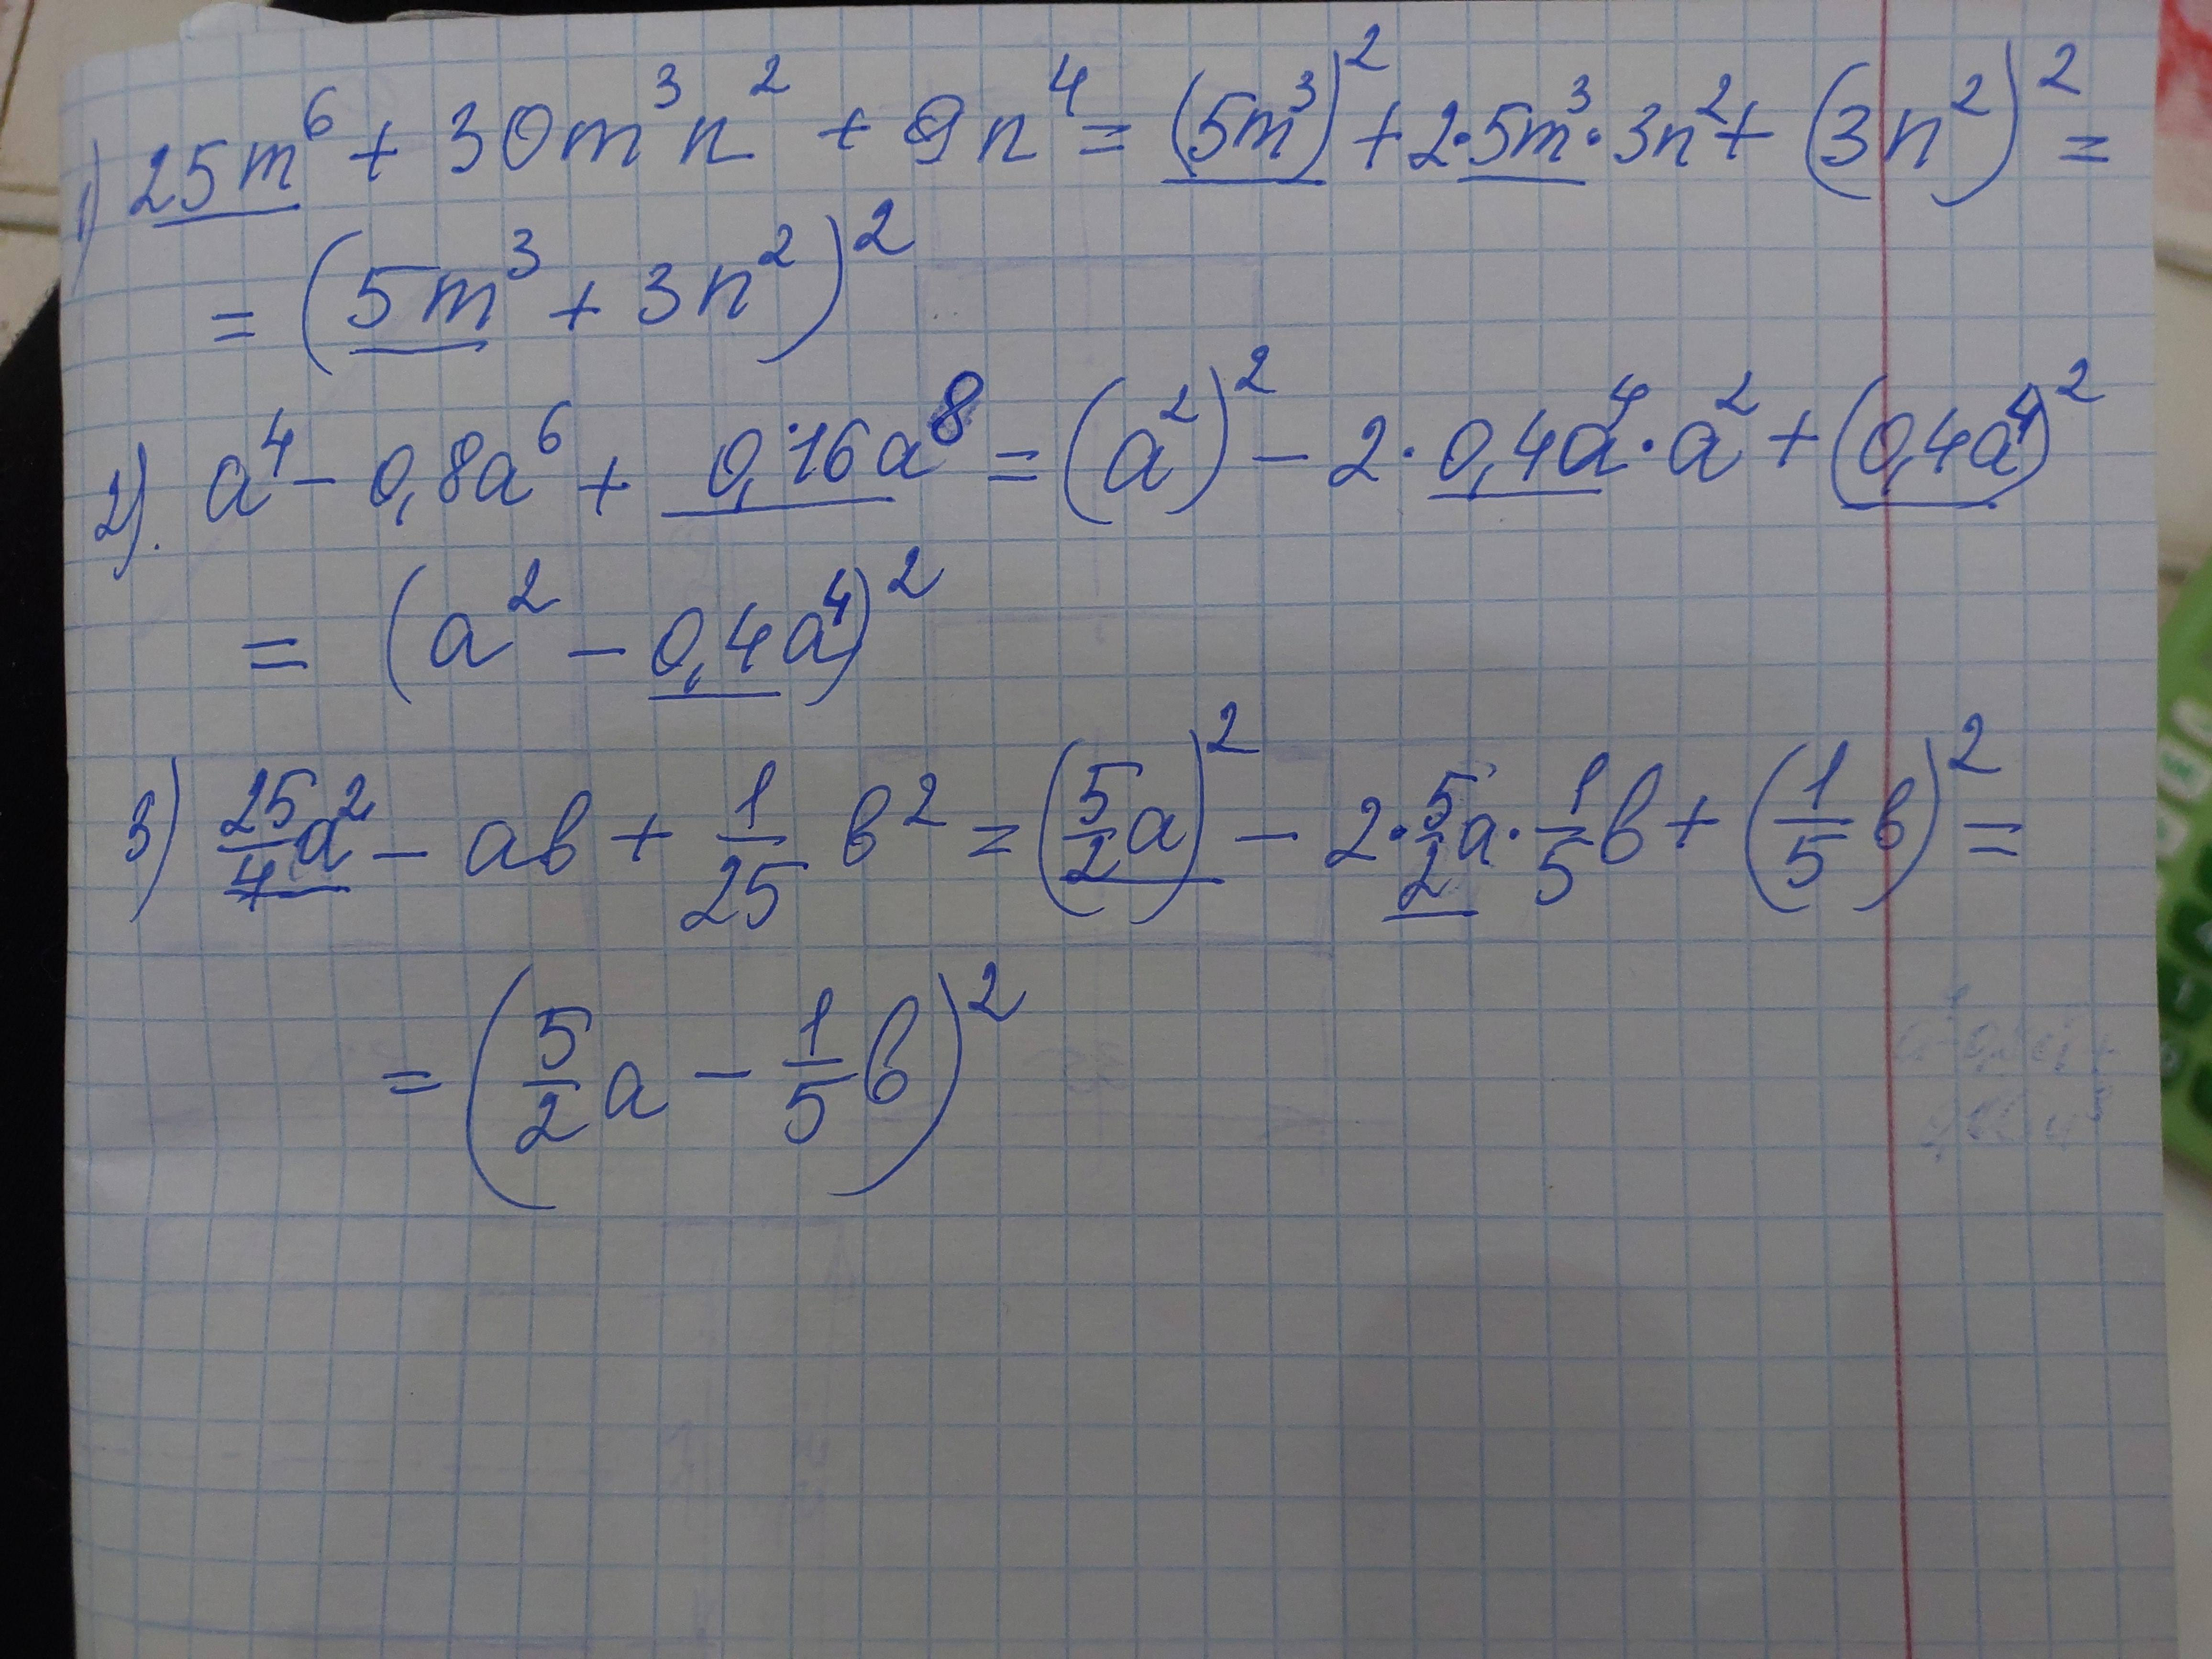 1) 25m⁶ + 30m³n² + 9n⁴ = (5m³)² + 2·5m³·3n² + (3n²)² =
= (5m³ + 3n²)²
2). a⁴ - 0,8a⁶ + 0,16a⁸ = (a²)² - 2·0,4a⁴·a² + (0,4a⁴)²
= (a² - 0,4a⁴)²
3) 25/4 a² - ab + 1/25 b² = (5/2 a)² - 2·5/2 a·1/5 b + (1/5 b)² =
= (5/2 a - 1/5 b)²